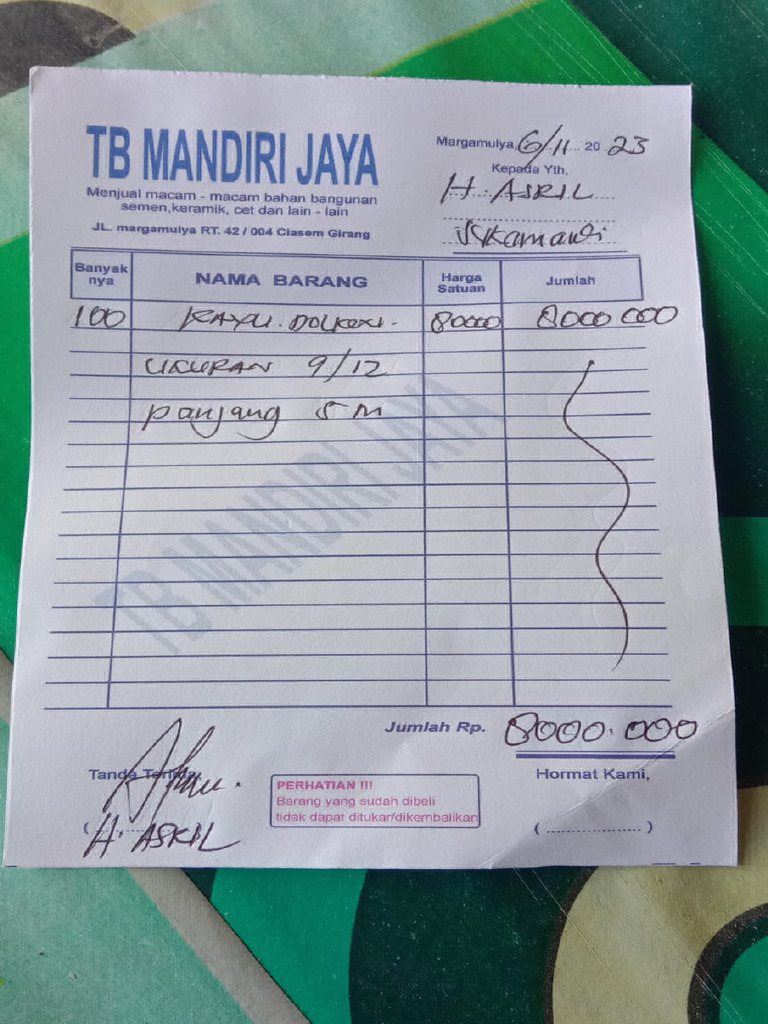 TB MANDIRI JAYA
Menjual macam - macam bahan bangunan
semen,keramik, cet dan lain - lain
JL. margamulya RT. 42 / 004 Ciasem Girang
Margamulya, 6/11 20 23
Kepada Yth,
H. ASKIL
Sukamandi
Banyak nya NAMA BARANG Harga Satuan Jumlah
100 KAYU DOLKEN. 80000 8000 000
UKURAN 9/12
panjang 5 M
TB MANDIRI JAYA
Jumlah Rp. 8000.000
Tanda Terima,
H. ASKIL
PERHATIAN !!!
Barang yang sudah dibeli
tidak dapat ditukar/dikembalikan
Hormat Kami,
(....................)